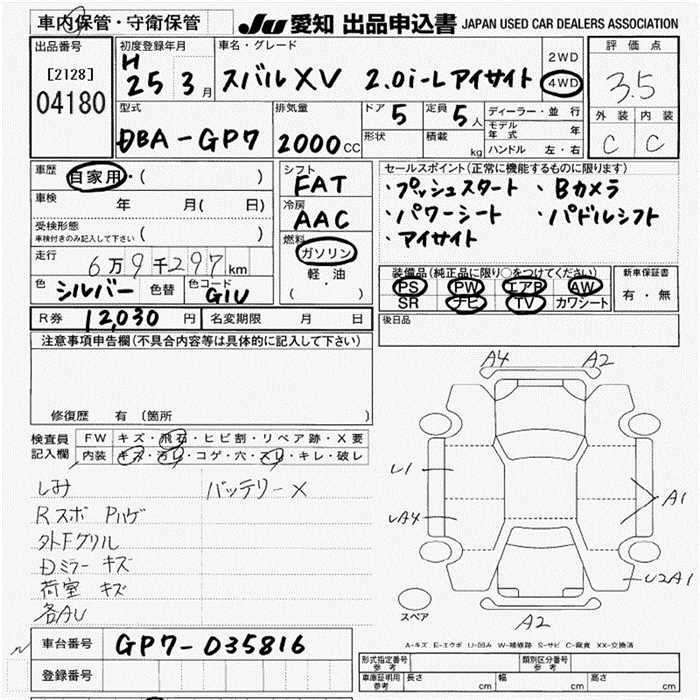 車内保管・守衛保管
JU 愛知 出品申込書 JAPAN USED CAR DEALERS ASSOCIATION
出品番号
[2128]
04180
初度登録年月
H 25 3月
車名・グレード
スバルXV 2.0i-L アイサイト
2WD
4WD
評価点
3.5
外装 内装
C C
型式
DBA-GP7
排気量
2000CC
ドア 5
形状
定員 5人
積載 kg
ディーラー・並行
モデル年式 年
ハンドル 左・右
車歴 自家用・( )
車検 年 月( 日)
受検形態
車検付きのみ記入して下さい ( )
走行 6万9千297km
色 シルバー 色替 色コード G1U
シフト
FAT
冷房
AAC
燃料
ガソリン
軽・油
( ・ )
セールスポイント(正常に機能するものに限ります)
・プッシュスタート ・Bカメラ
・パワーシート ・パドルシフト
・アイサイト
装備品(純正品に限り○をつけてください)
PS PW エアB AW
SR ナビ TV カワシート
新車保証書
有・無
R券 12,030円 名変期限 月 日
後日品
注意事項申告欄(不具合内容等は具体的に記入して下さい)
修復歴 有 〔箇所 〕
検査員記入欄
FW キズ・飛石・ヒビ割・リペア跡・X要
内装 キズ・汚レ・コゲ・穴・スレ・キレ・破レ
しみ バッテリーX
Rスポ Pハゲ
外Fグリル
Dミラー キズ
荷室 キズ
各AU
A4 A2
U1
UA4
A1
U2A1
A2
スペア
A-キズ E-エクボ U-凹み W-補修跡 S-サビ C-腐食 XX-交換済
車台番号 GP7-035816
登録番号
形式指定番号 参考
類別区分番号 参考
車庫証明用 参考 長さ cm 幅 cm 高さ cm